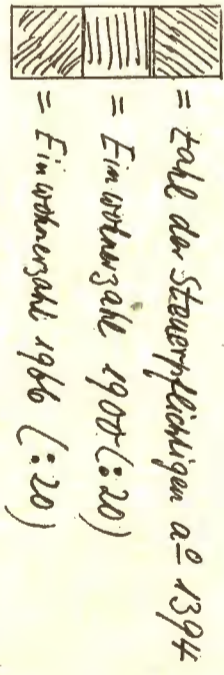 = Zahl der Steuerpflichtigen aº 1394
= Einwohnerzahl 1900 (:20)
= Einwohnerzahl 1966 (:20)